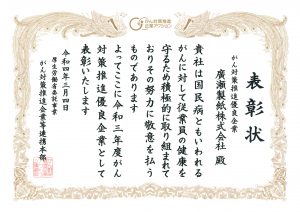 がん対策推進
企業アクション
表彰状
がん対策推進優良企業
廣瀬製紙株式会社 殿
貴社は国民病ともいわれる
がんに対して従業員の健康を
守るため積極的に取り組まれて
おりその努力に敬意を払う
ものであります
よってここに令和三年度がん
対策推進優良企業として
表彰いたします
令和四年三月四日
厚生労働省委託事業
がん対策推進企業等連携本部